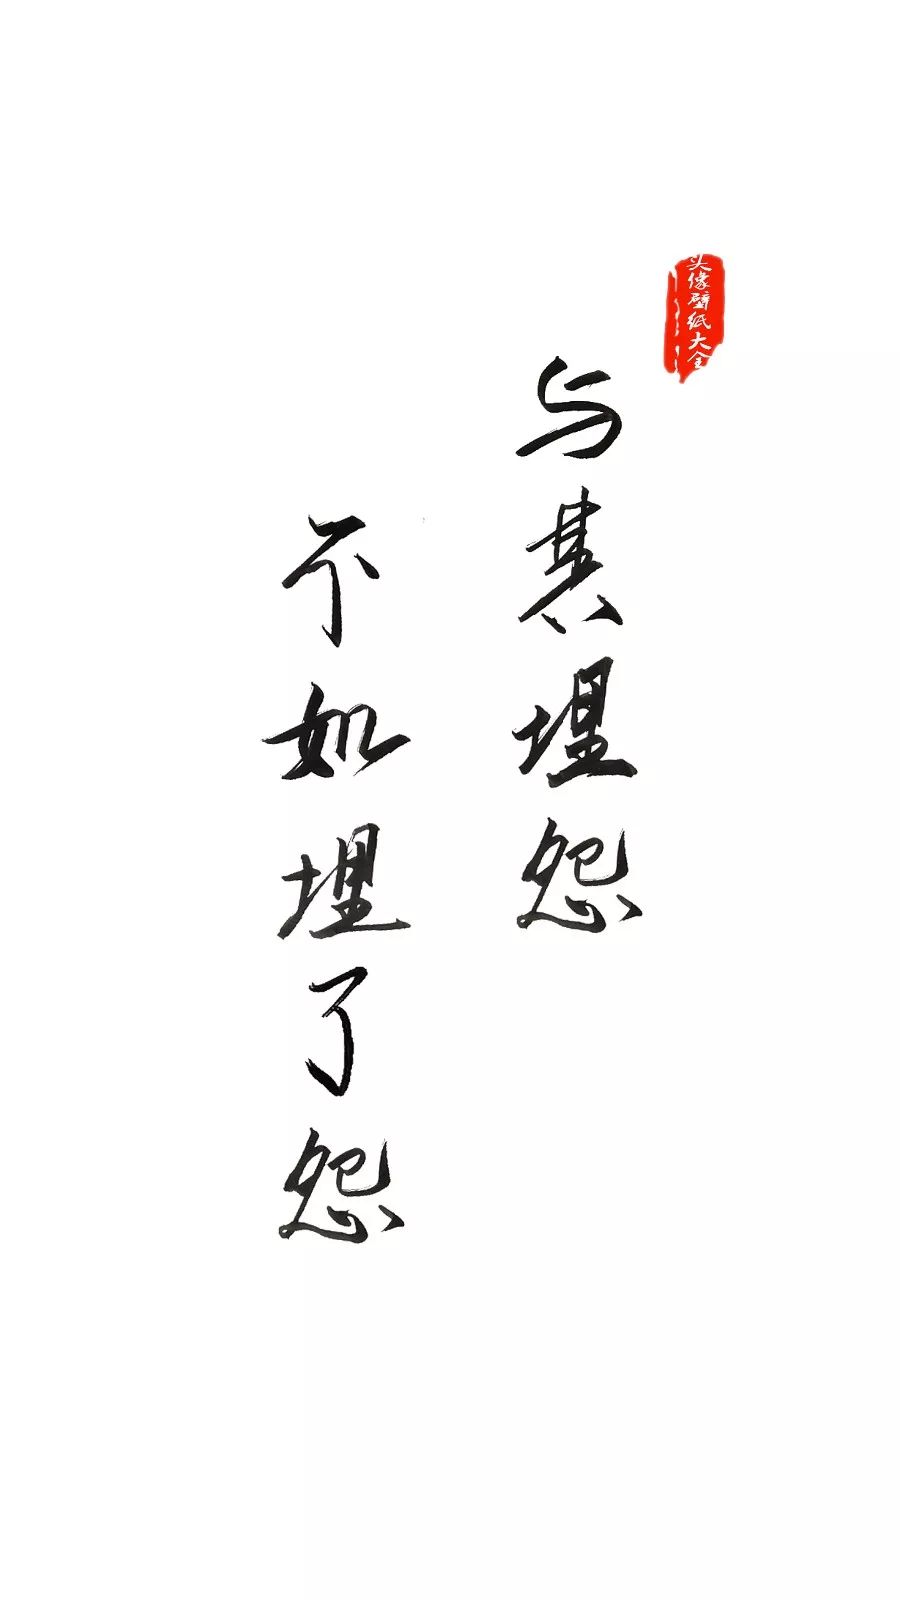 头像壁纸大全
与其埋怨
不如埋了怨